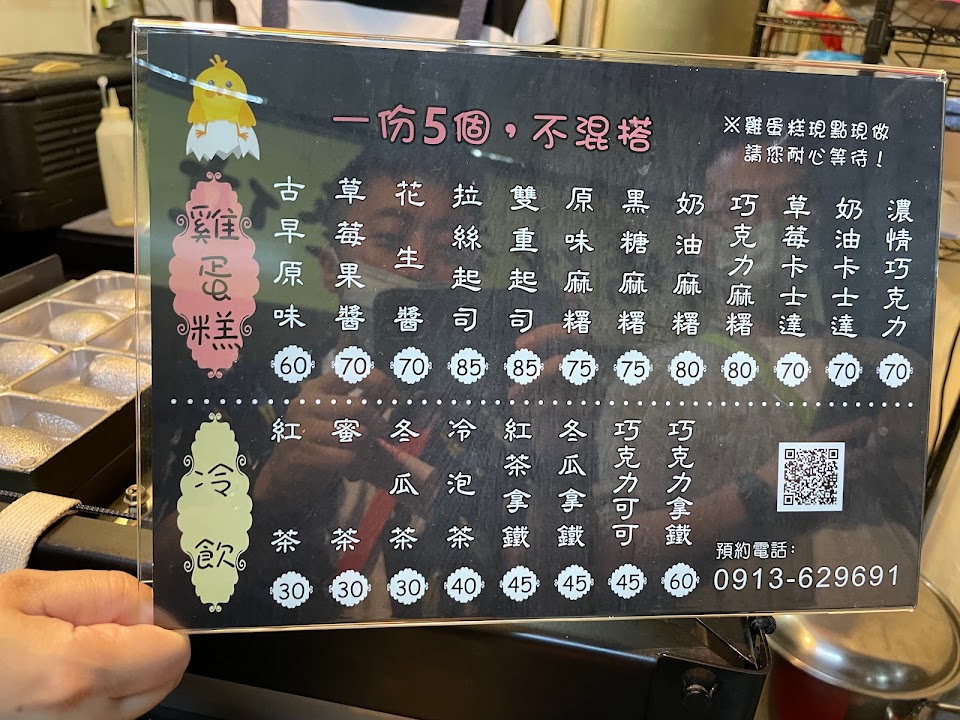 一份5個，不混搭
※雞蛋糕現點現做
請您耐心等待！
雞蛋糕
古早原味
60
草莓果醬
70
花生醬
70
拉絲起司
85
雙重起司
85
原味麻糬
75
黑糖麻糬
75
奶油麻糬
80
巧克力麻糬
80
草莓卡士達
70
奶油卡士達
70
濃情巧克力
70
冷飲
紅茶
30
蜜茶
30
冬瓜茶
30
冷泡茶
40
紅茶拿鐵
45
冬瓜拿鐵
45
巧克力可可
45
巧克力拿鐵
60
預約電話：
0913-629691